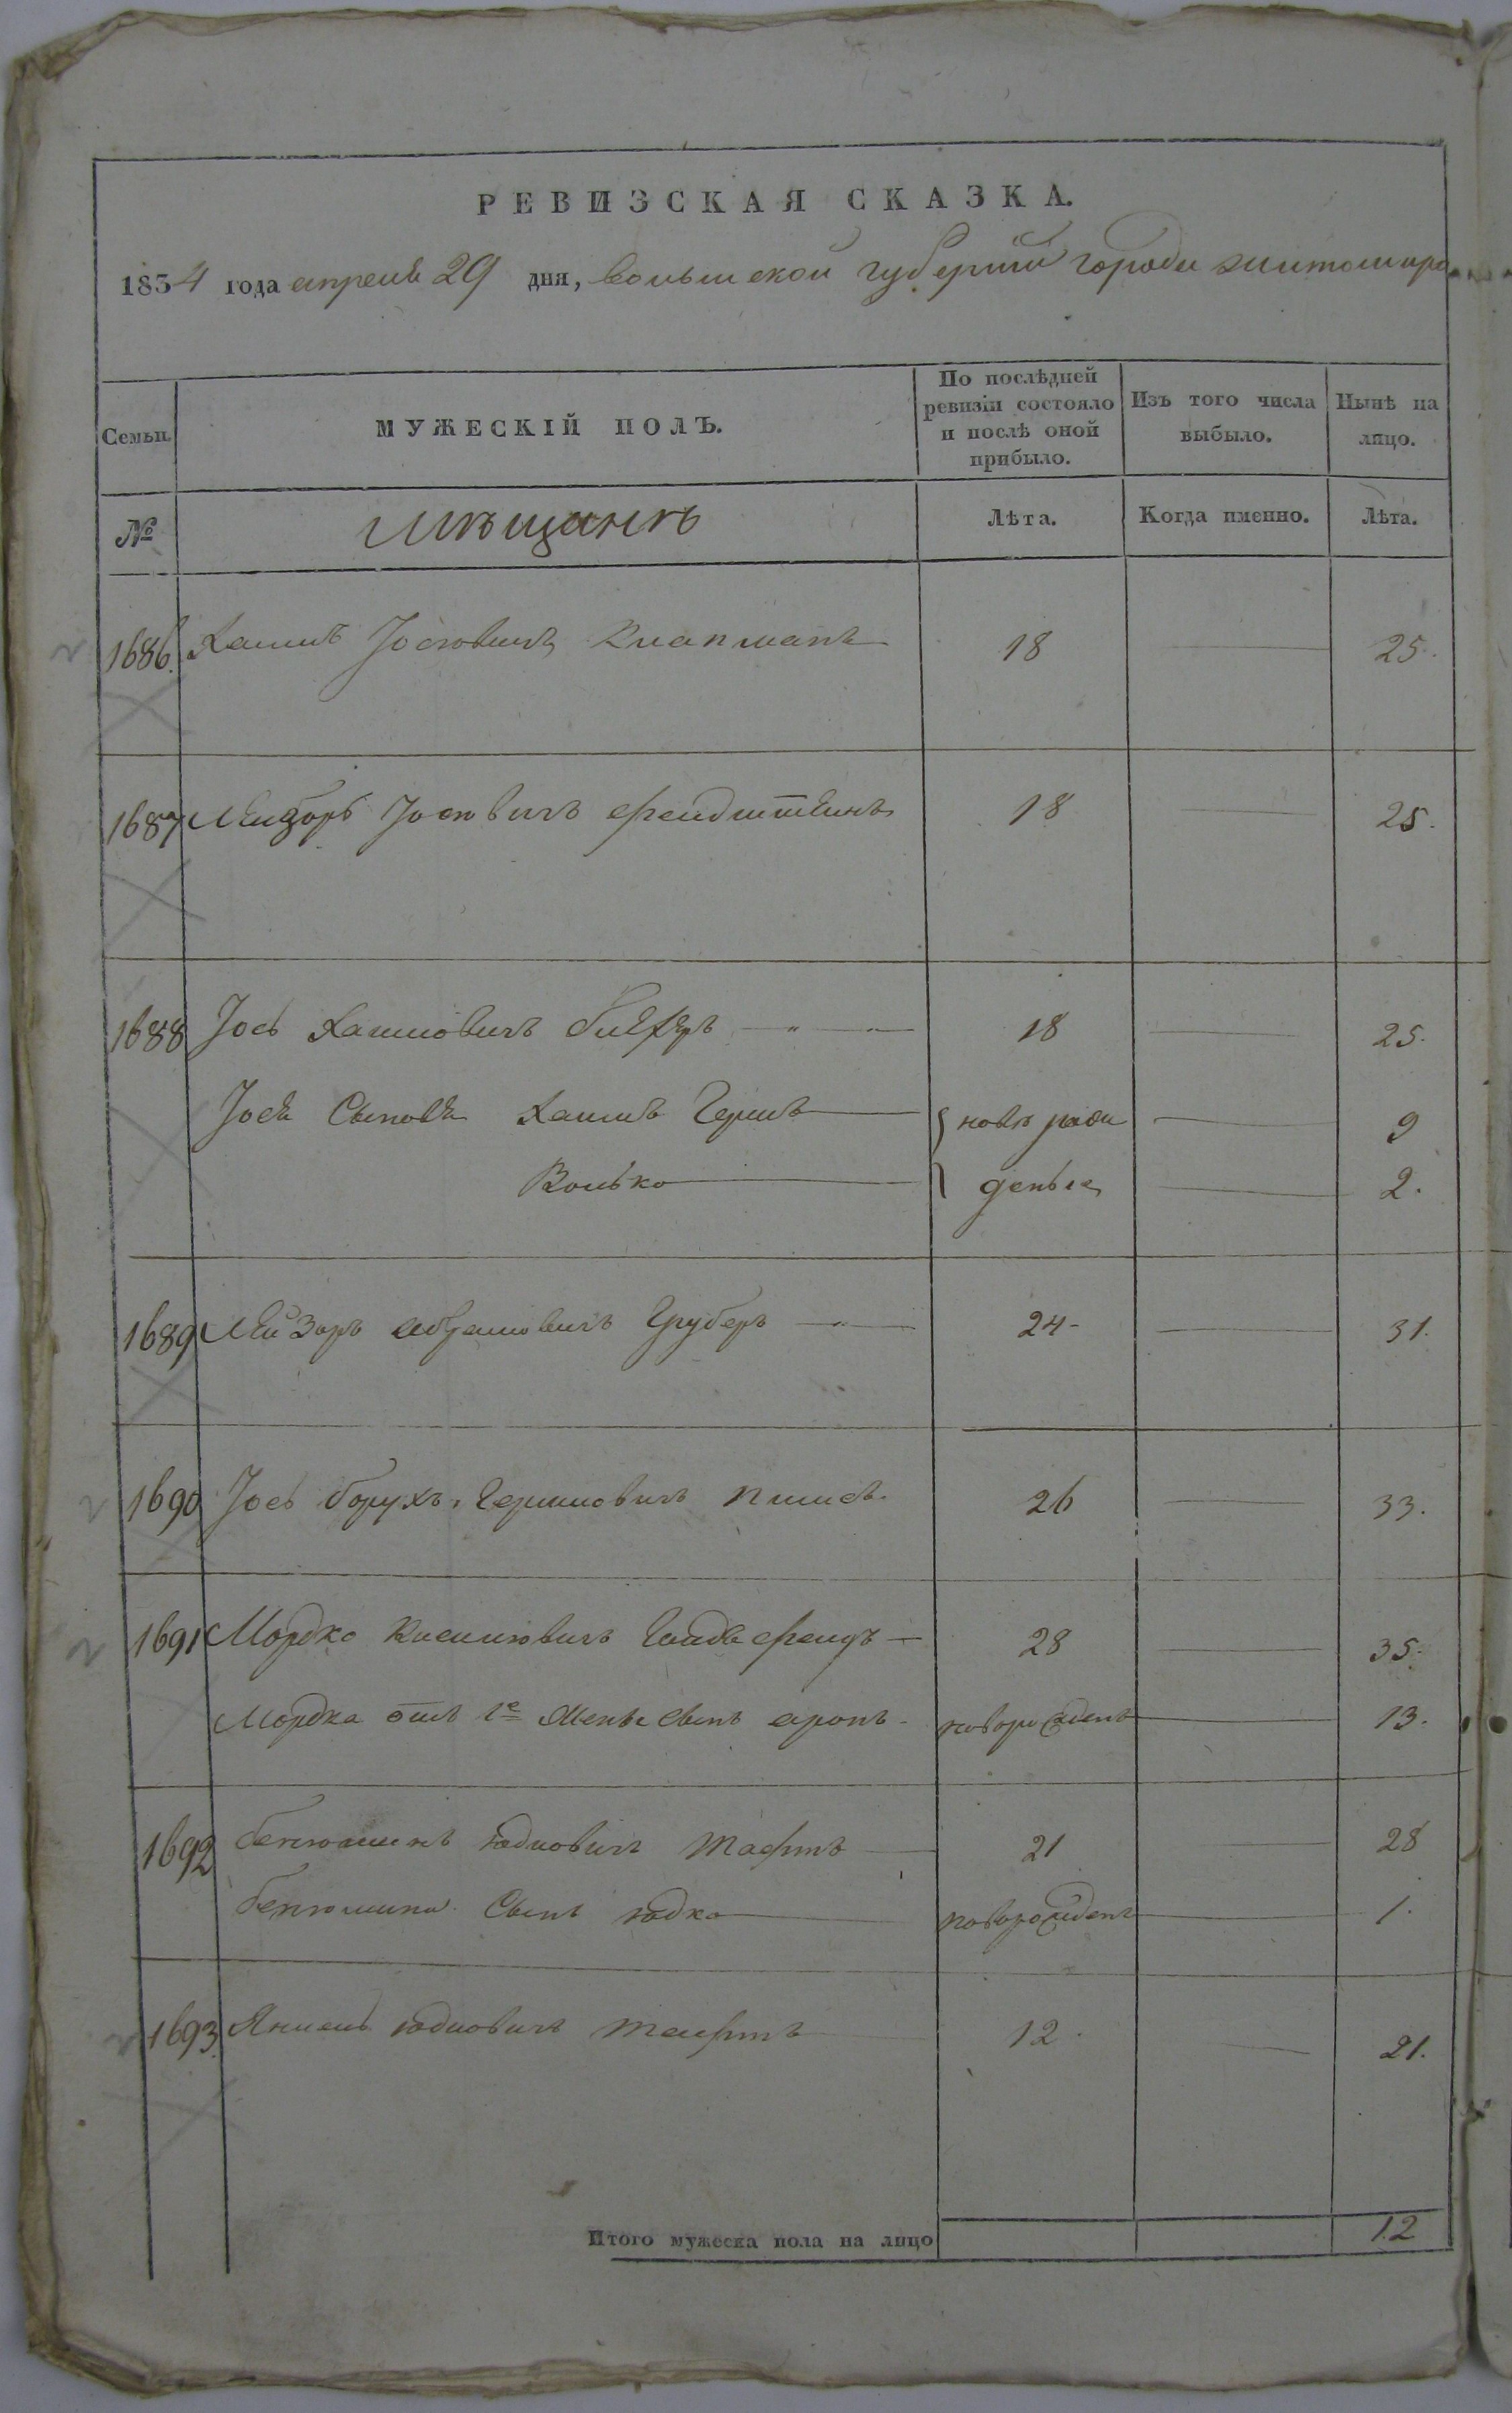 РЕВИЗСКАЯ СКАЗКА.
1834 года апреля 29 дня, волынской губернии города житомира
Семьи.
МУЖЕСКІЙ ПОЛЪ.
По послѣдней ревизіи состояло и послѣ оной прибыло.
Изъ того числа выбыло.
Нынѣ на лицо.
№
Мѣщанѣ
Лѣта.
Когда именно.
Лѣта.
1686. Хаимъ Іосіовичъ 18 25.
1687 Лейзоръ Іосіовичъ 18 25.
1688 Іось Хаимовичъ 18 25.
Іося Сыновья Хаимъ Гершъ новорож 9
Волько дены 2.
1689 Лейзоръ Абрамовичъ Груберъ 24 31.
1690 Іось Борухъ Гершковичъ 26 33.
1691 Мордко 28 35.
Мордка отъ 1е Жены Сынъ аронъ новорожденъ 13.
1692 Бенюминъ юдковичъ 21 28
Бенюмина Сынъ юдко новорожденъ 1.
1693. Янкель юдковичъ 12. 21.
Итого мужеска пола на лицо 12